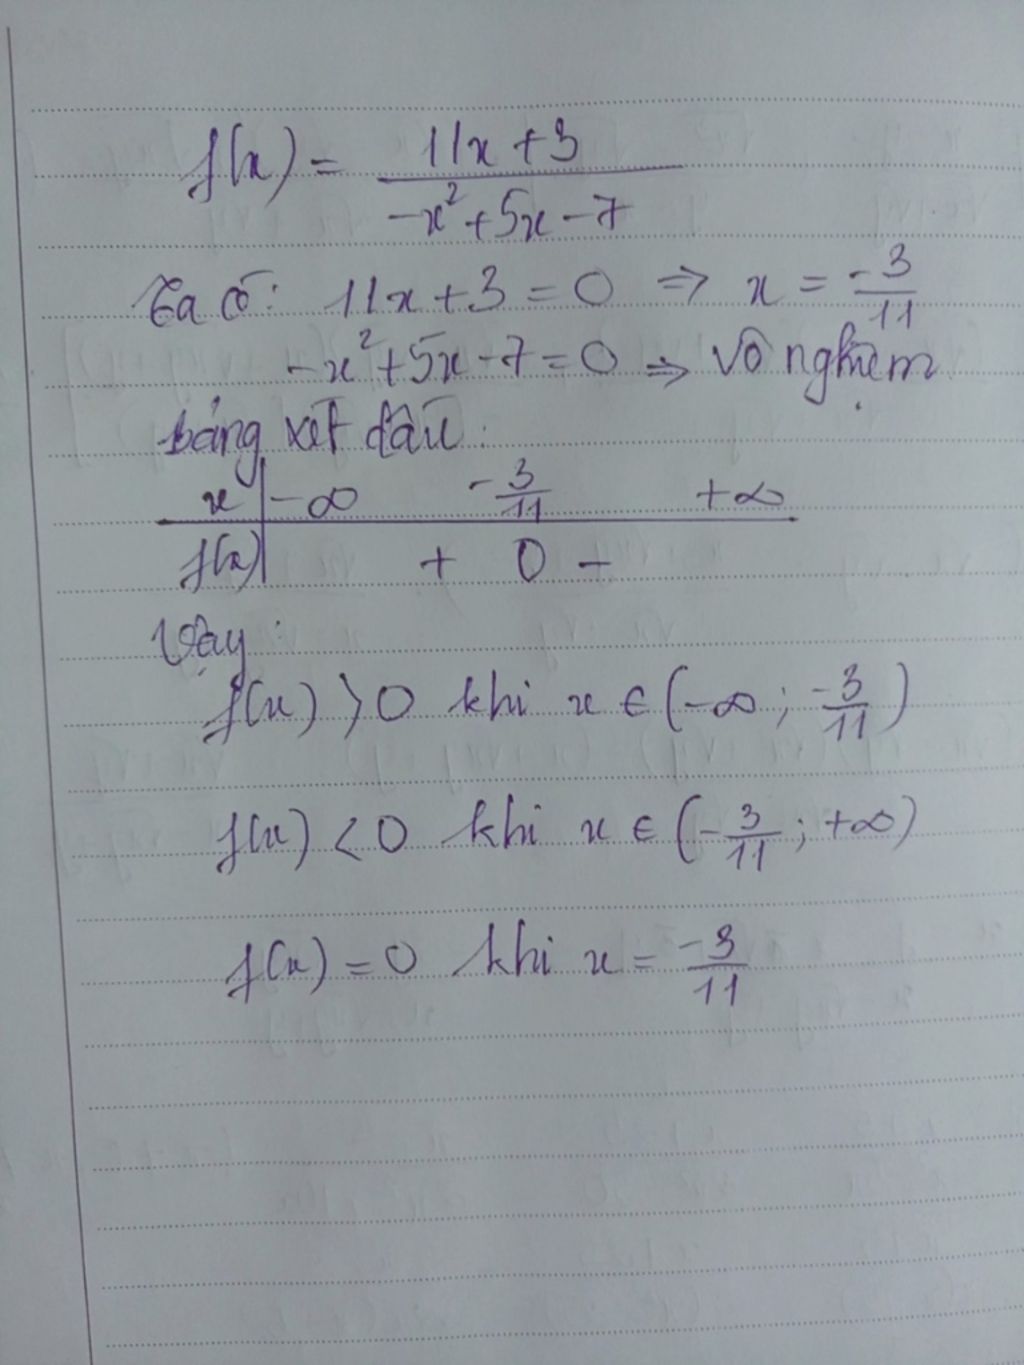 f(x) = (11x + 3)/(-x² + 5x - 7)
Ta có: 11x + 3 = 0 ⇒ x = -3/11
-x² + 5x - 7 = 0 ⇒ vô nghiệm
bảng xét dấu:
x | -∞ -3/11 +∞
f(x) | + 0 -
Vậy:
f(x) > 0 khi x ∈ (-∞; -3/11)
f(x) < 0 khi x ∈ (-3/11; +∞)
f(x) = 0 khi x = -3/11